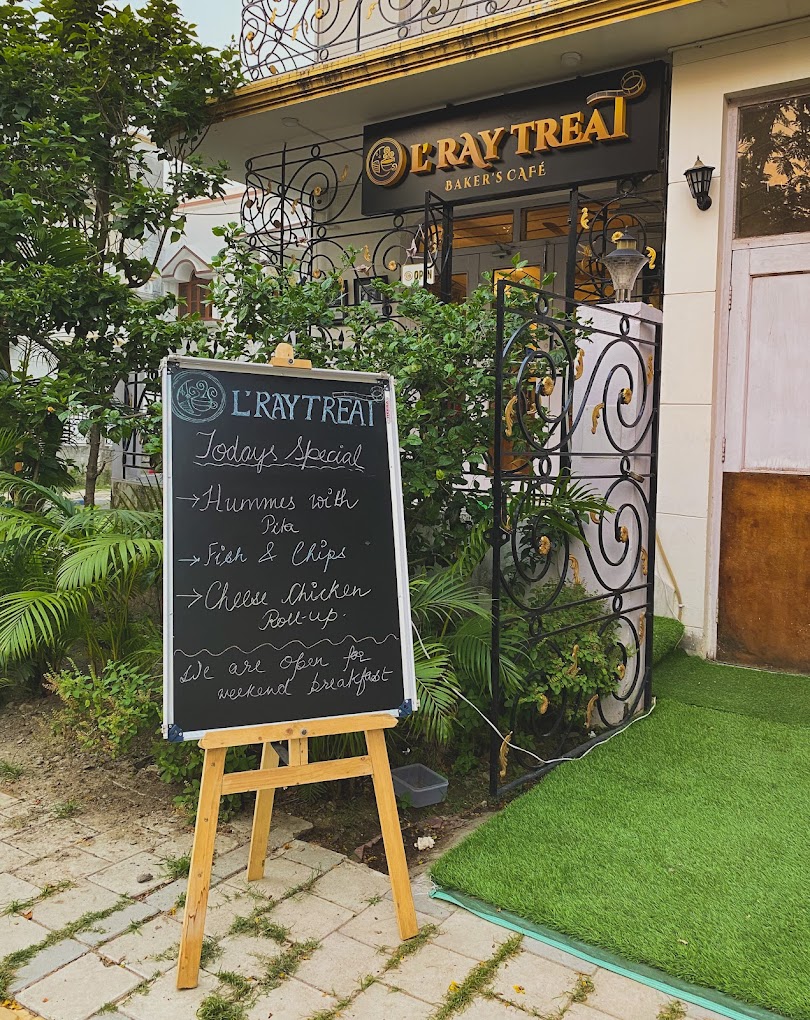 L'RAY TREAT
BAKER'S CAFÉ
OPEN
L'RAY TREAT
Todays Special
→ Hummes with
Pita
→ Fish & Chips
→ Cheese Chicken
Roll-up.
We are open for
weekend breakfast